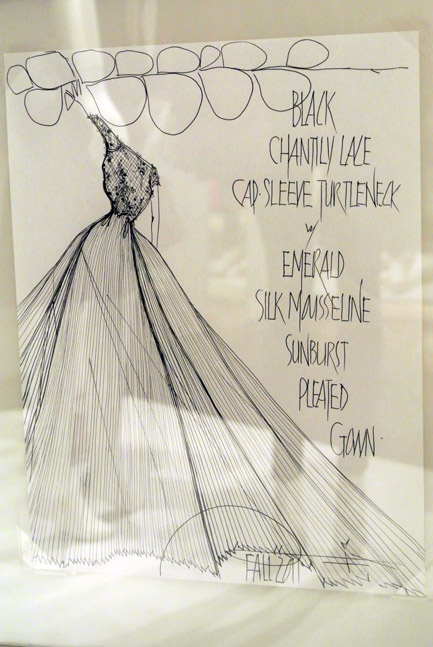 BLACK
CHANTILY LACE
CAP·SLEEVE TURTLENECK
w/
EMERALD
SILK MOUSSELINE
SUNBURST
PLEATED
GOWN·
FALL 2011